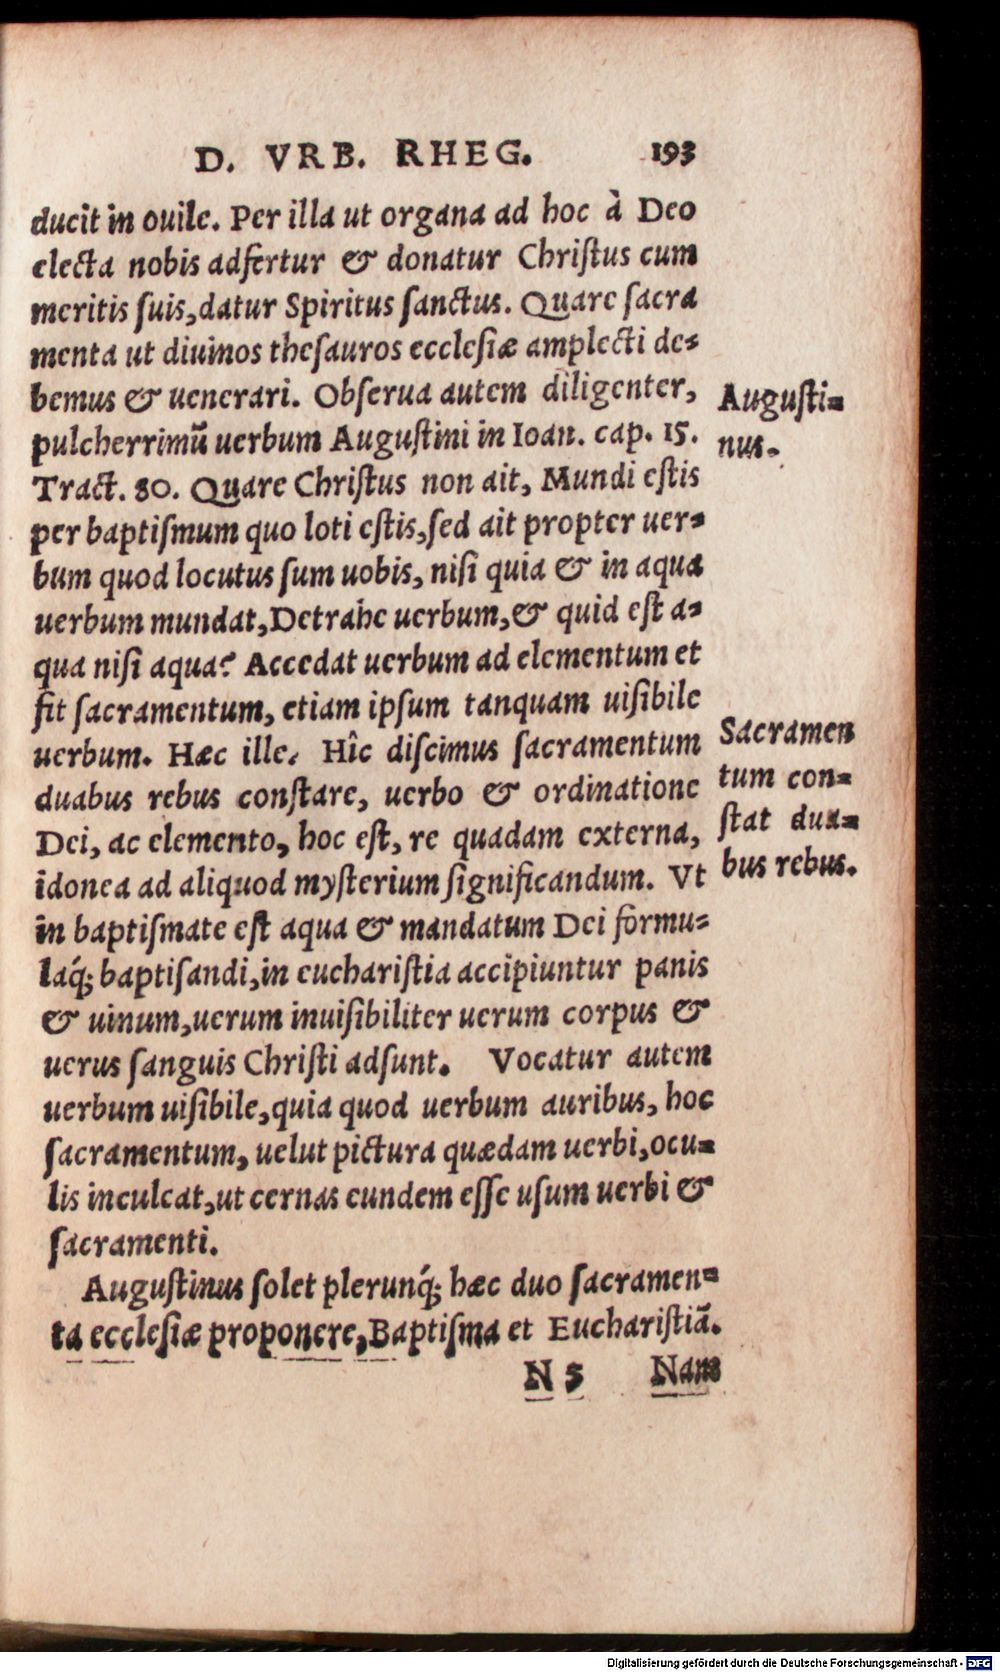 D. VRB. RHEG. 193
ducit in ouile. Per illa ut organa ad hoc à Deo
electa nobis adfertur & donatur Chriſtus cum
meritis ſuis, datur Spiritus ſanctus. Quare ſacra
menta ut diuinos theſauros eccleſiæ amplecti de-
bemus & uenerari. Obſerua autem diligenter,
pulcherrimū uerbum Auguſtini in Ioan. cap. 15.
Tract. 80. Quare Chriſtus non ait, Mundi eſtis
per baptiſmum quo loti eſtis, ſed ait propter uer-
bum quod locutus ſum uobis, niſi quia & in aqua
uerbum mundat, Detrahe uerbum, & quid eſt a-
qua niſi aqua? Accedat uerbum ad elementum et
fit ſacramentum, etiam ipſum tanquam uiſibile
uerbum. Hæc ille. Hîc diſcimus ſacramentum
duabus rebus conſtare, uerbo & ordinatione
Dei, ac elemento, hoc eſt, re quadam externa,
idonea ad aliquod myſterium ſignificandum. Vt
in baptiſmate eſt aqua & mandatum Dei formu-
laq́; baptiſandi, in euchariſtia accipiuntur panis
& uinum, uerum inuiſibiliter uerum corpus &
uerus ſanguis Chriſti adſunt. Vocatur autem
uerbum uiſibile, quia quod uerbum auribus, hoc
ſacramentum, uelut pictura quædam uerbi, ocu-
lis inculcat, ut cernas eundem eſſe uſum uerbi &
ſacramenti.
Auguſtinus ſolet plerunq́; hæc duo ſacramen-
ta eccleſiæ proponere, Baptiſma et Euchariſtiā.
N 5 Nam
Auguſti-
nus.
Sacramen
tum con-
ſtat dua-
bus rebus.
Digitalisierung gefördert durch die Deutsche Forschungsgemeinschaft - DFG